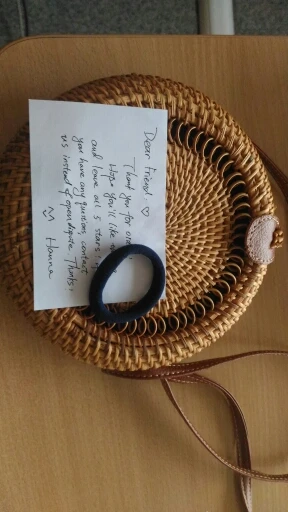 Dear Friend, ♡
Thank you for
Hope you'll like
and leave all 5 stars
you have any questions, contact
us instead of open dispute. Thanks!
Hanna